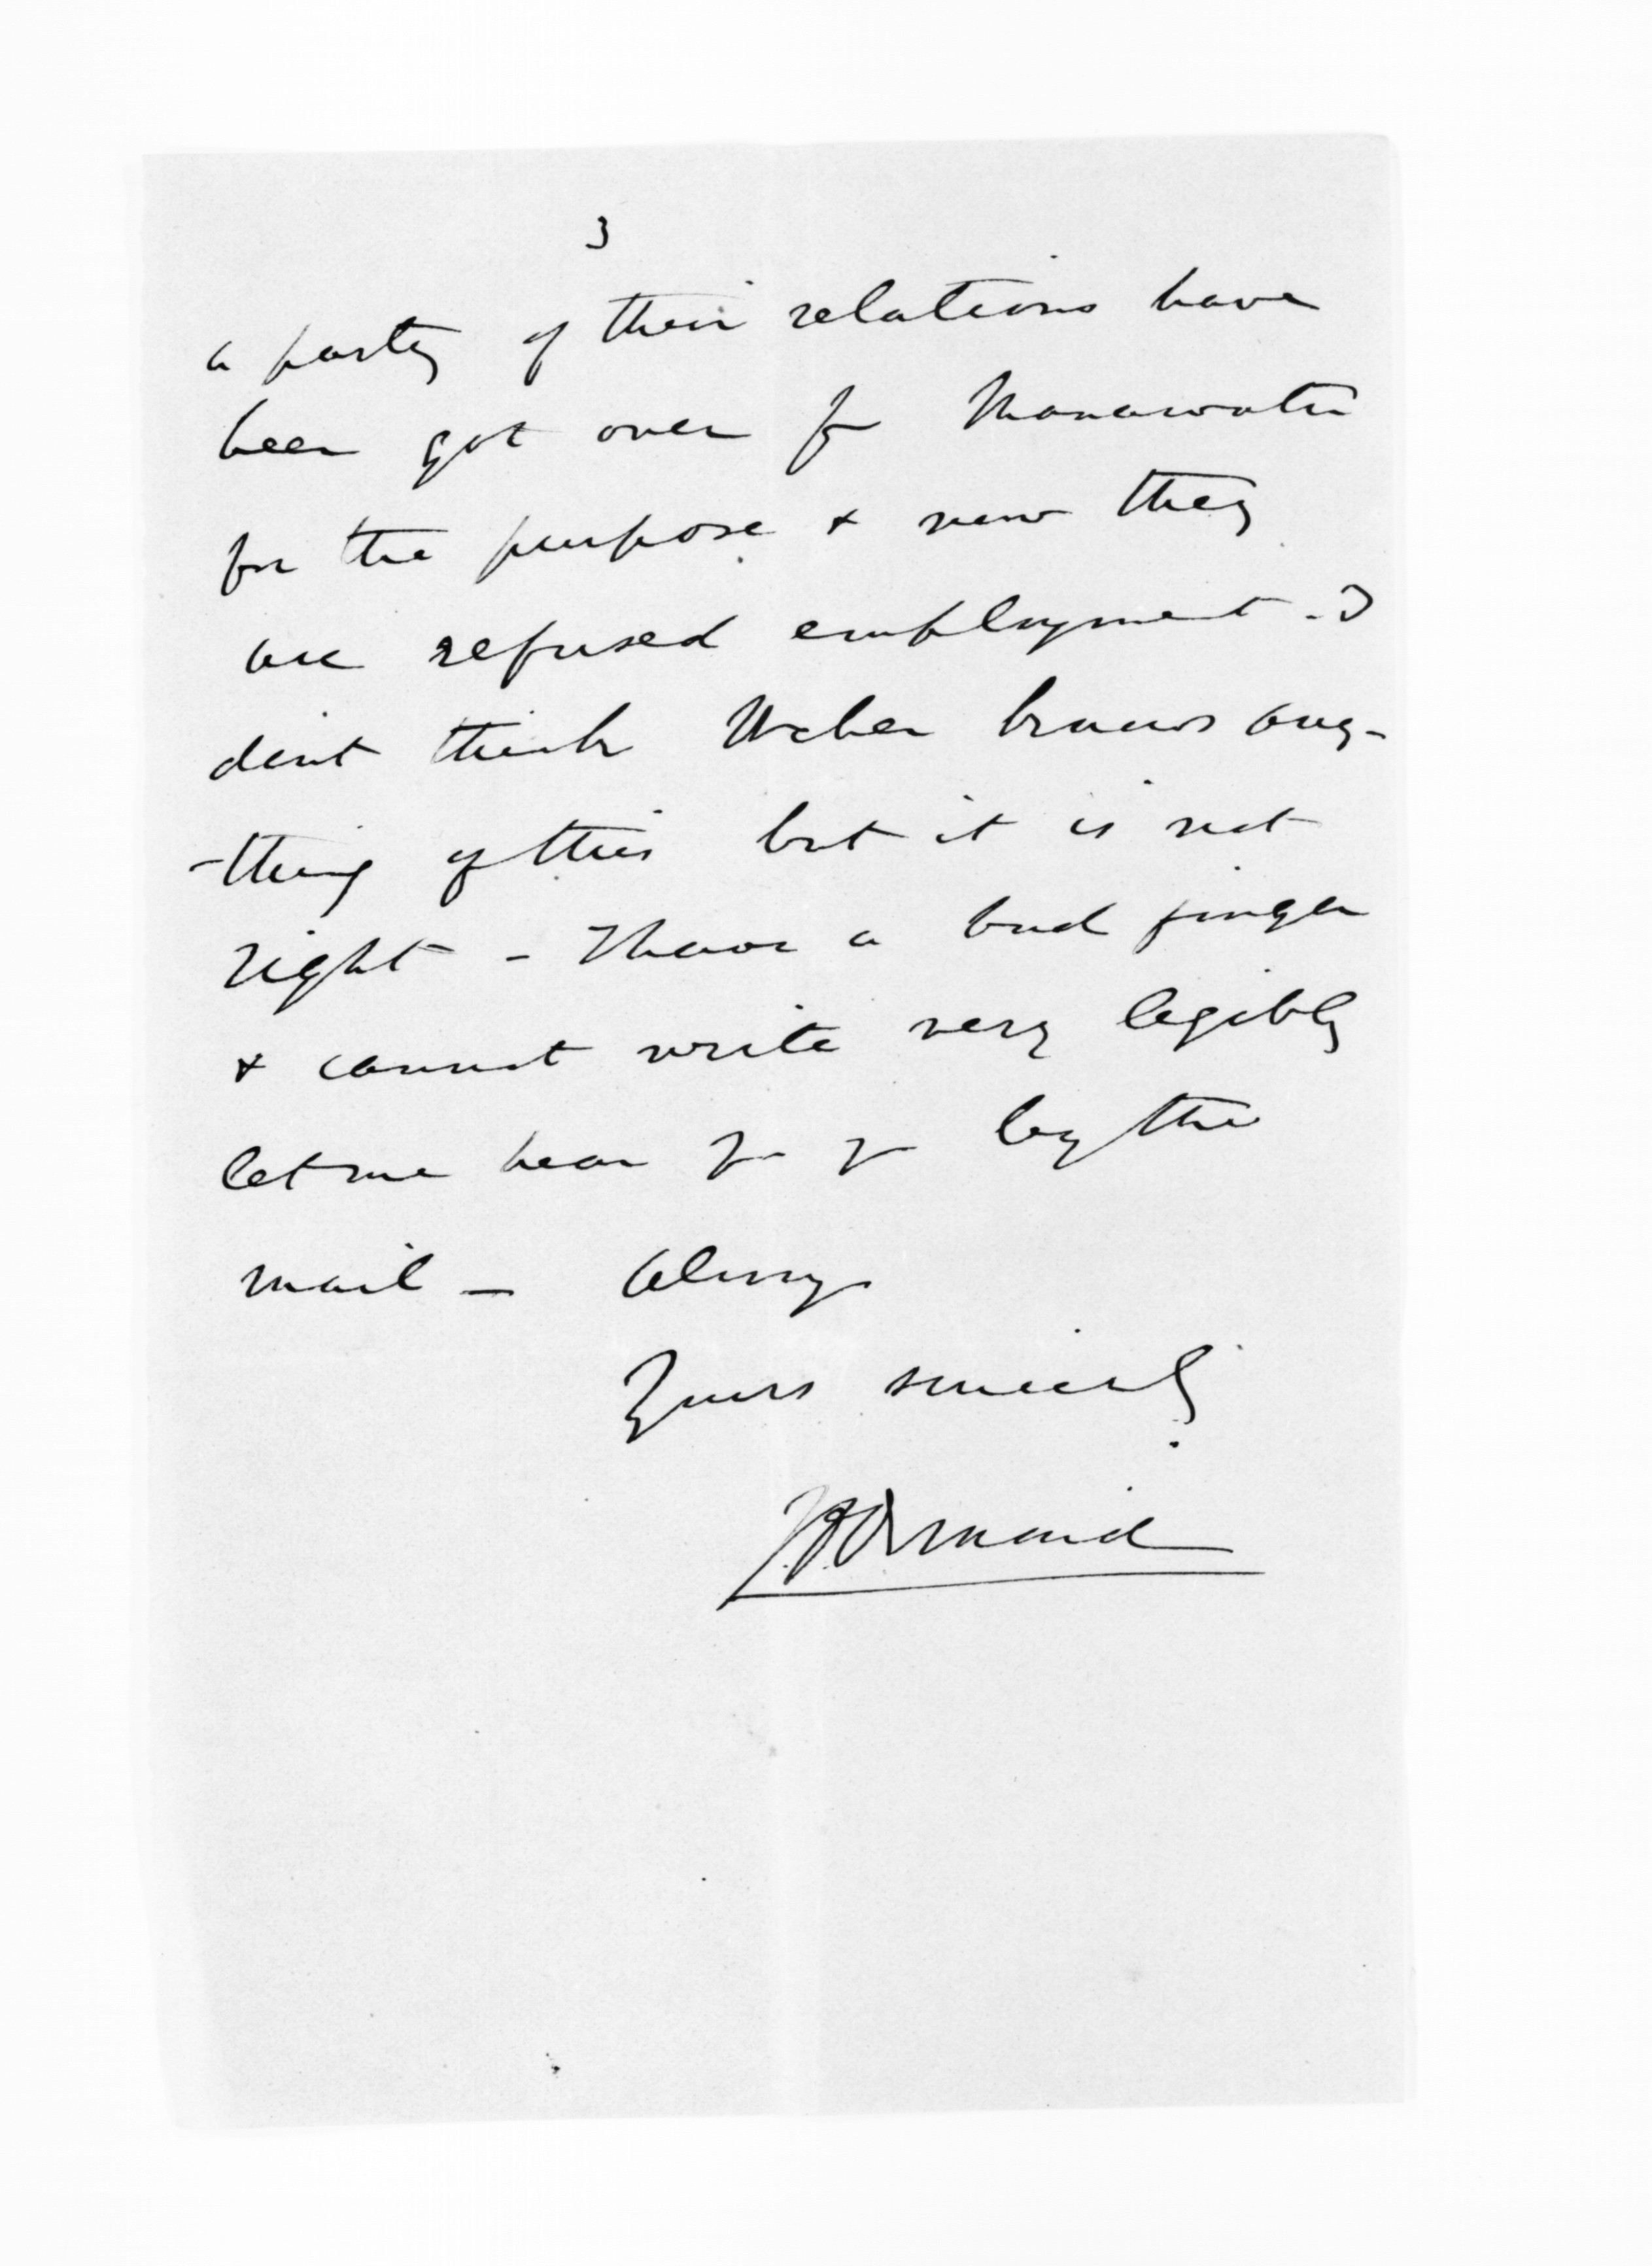 3
a party of their relations have
been got over fr Manawatu
for the purpose & now they
are refused employment. I
dont think Weber knows any-
-thing of this but it is not
right - I have a bad finger
& cannot write very legibly
let me hear fr yr by the
mail - Always
Yours sincerely
J D Ormond